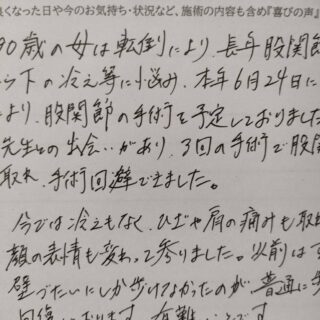 良くなった日や今のお気持ち・状況など、施術の内容も含め『喜びの声』
90歳の母は転倒により、長年股関節
下の冷え等に悩み、本年6月24日に
より、股関節の手術を予定しておりました
先生との出会いがあり、3回の手術で股関
取れ、手術回避できました。
今では冷えもなく、ひざや肩の痛みも取れ
顔の表情も変わって参りました。以前は
壁づたいにしか歩けなかったのが、普通に歩
回復しております。有難いことです